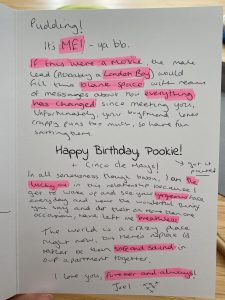 Pudding!
It's ME! - ya bb.
If this were a movie, the male
lead (Probably a London Boy) would
fill this blank space with reams
of messages about how everything
has changed since meeting you,
Unfortunately, your boyfriend loves
crappy puns too much, so have fun
surviving them.
Happy Birthday Pookie!
+ Cinco de Mayo!
In all seriousness though baby, I am the
lucky one in this relationship because I
get to wake up and see your gorgeous face
everyday and hear the wonderful things
you say and do that on more than one
occasion, have left me breathless.
The world is a crazy place
right now, but there's nowhere I'd
rather be than safe and sound in
our apartment together.
I love you, forever and always!
Joel